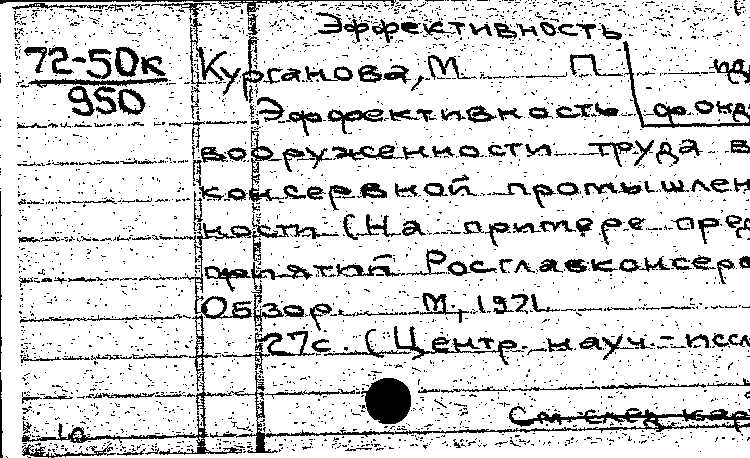 Эффективность
72-50к
950
Курганова, М П
Эффективность фонд
вооруженности труда в
консервной промышлен
ности (На примере пред
приятий Росглавконсерв
Обзор. М., 1971.
27с. (Центр. науч.-иссл
См след кар
10